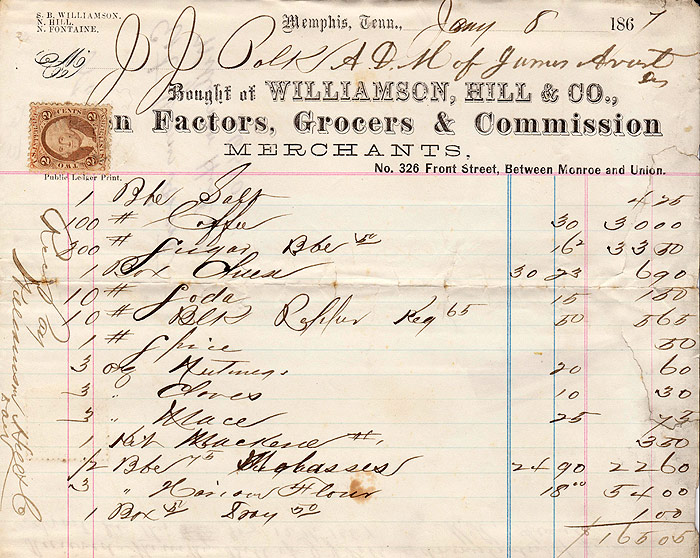 S. B. WILLIAMSON.
N. HILL.
N. FONTAINE.
Memphis, Tenn., Jany 8 1867
M J J Polk A D M of James Avent
Bought of WILLIAMSON, HILL & CO.,
n Factors, Grocers & Commission
MERCHANTS,
No. 326 Front Street, Between Monroe and Union.
Public Ledger Print.
1 Bbl Salt 4 25
100 # Coffee 30 30 00
200 # Sugar Bbl 50 16 2 33 50
1 Box Cheese 30 23 6 90
10 # Soda 15 1 50
10 # Blk Pepper Keg 65 50 5 65
1 # Spice 50
3 oz Nutmegs 20 60
3 " Cloves 10 30
3 " Mace 25 75
1 Kit Mackerel #1 3 50
1/2 Bbl Molasses 24 90 22 60
3 " Flour 18 00 54 00
1 Box Dray 50 1 00
165 05
Rec Pay
Williamson Hill & Co